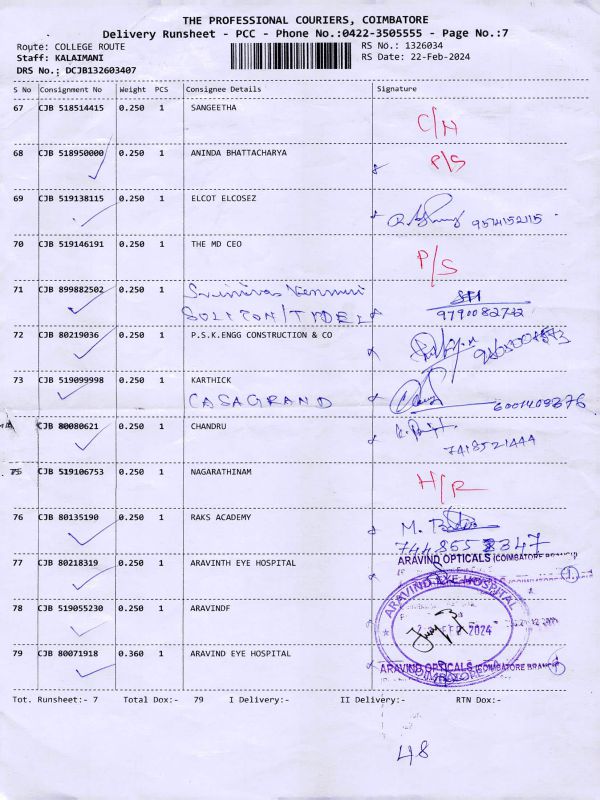 THE PROFESSIONAL COURIERS, COIMBATORE
Delivery Runsheet - PCC - Phone No.:0422-3505555 - Page No.:7
Route: COLLEGE ROUTE RS No.: 1326034
Staff: KALAIMANI RS Date: 22-Feb-2024
DRS No.: DCJB132603407
S No Consignment No Weight PCS Consignee Details Signature
67 CJB 518514415 0.250 1 SANGEETHA C/H
68 CJB 518950000 0.250 1 ANINDA BHATTACHARYA P/S
69 CJB 519138115 0.250 1 ELCOT ELCOSEZ
70 CJB 519146191 0.250 1 THE MD CEO P/S
71 CJB 899882502 0.250 1 Srinivas
9790082722
72 CJB 80219036 0.250 1 P.S.K.ENGG CONSTRUCTION & CO
73 CJB 519099998 0.250 1 KARTHICK
CASAGRAND
CJB 80080621 0.250 1 CHANDRU
7418521444
75 CJB 519106753 0.250 1 NAGARATHINAM H/R
76 CJB 80135190 0.250 1 RAKS ACADEMY
77 CJB 80218319 0.250 1 ARAVINTH EYE HOSPITAL ARAVIND OPTICALS (COIMBATORE BRANCH)
ARAVIND EYE HOSPITAL
78 CJB 519055230 0.250 1 ARAVINDF
FEB 2024
79 CJB 80071918 0.360 1 ARAVIND EYE HOSPITAL
ARAVIND OPTICALS (COIMBATORE BRANCH)
COIMBATORE
Tot. Runsheet:- 7 Total Dox:- 79 I Delivery:- II Delivery:- RTN Dox:-
48